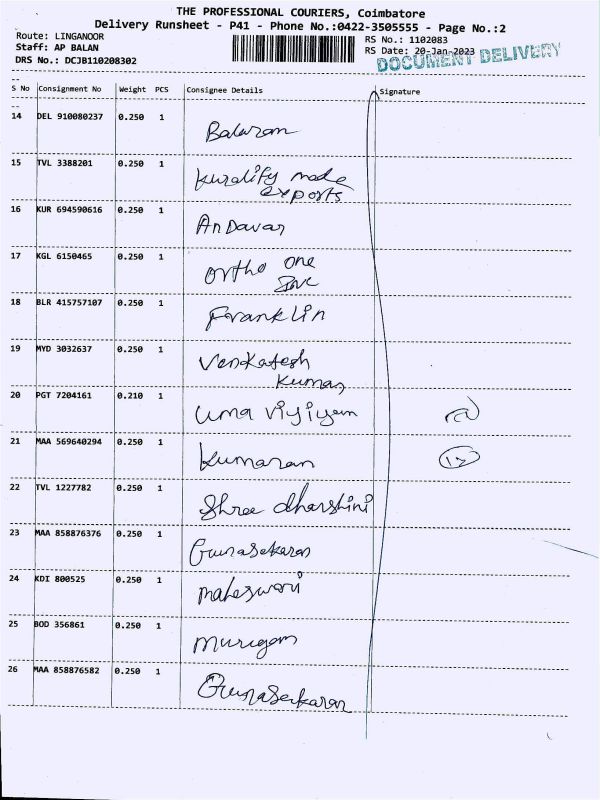 THE PROFESSIONAL COURIERS, Coimbatore
Delivery Runsheet - P41 - Phone No.:0422-3505555 - Page No.:2
Route: LINGANOOR
RS No.: 1102083
Staff: AP BALAN
RS Date: 20-Jan-2023
DRS No.: DCJB110208302
DOCUMENT DELIVERY
S No Consignment No Weight PCS Consignee Details Signature
14 DEL 910080237 0.250 1
Balaram
15 TVL 3388201 0.250 1
Kuralify made
exports
16 KUR 694590616 0.250 1
Andavar
17 KGL 6150465 0.250 1
ortho one
18 BLR 415757107 0.250 1
Franklin
19 MYD 3032637 0.250 1
Venkatesh
Kumar
20 PGT 7204161 0.210 1
uma Vijiyam
21 MAA 569640294 0.250 1
Kumaran
22 TVL 1227782 0.250 1
Shree dharshini
23 MAA 858876376 0.250 1
Gunasekaran
24 KDI 800525 0.250 1
maheswari
25 BOD 356861 0.250 1
murugam
26 MAA 858876582 0.250 1
Gunasekaran